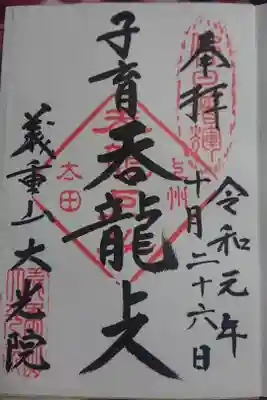 奉拝
令和元年
十月二十六日
子育呑龍上人
上州
太田
義重山大光院